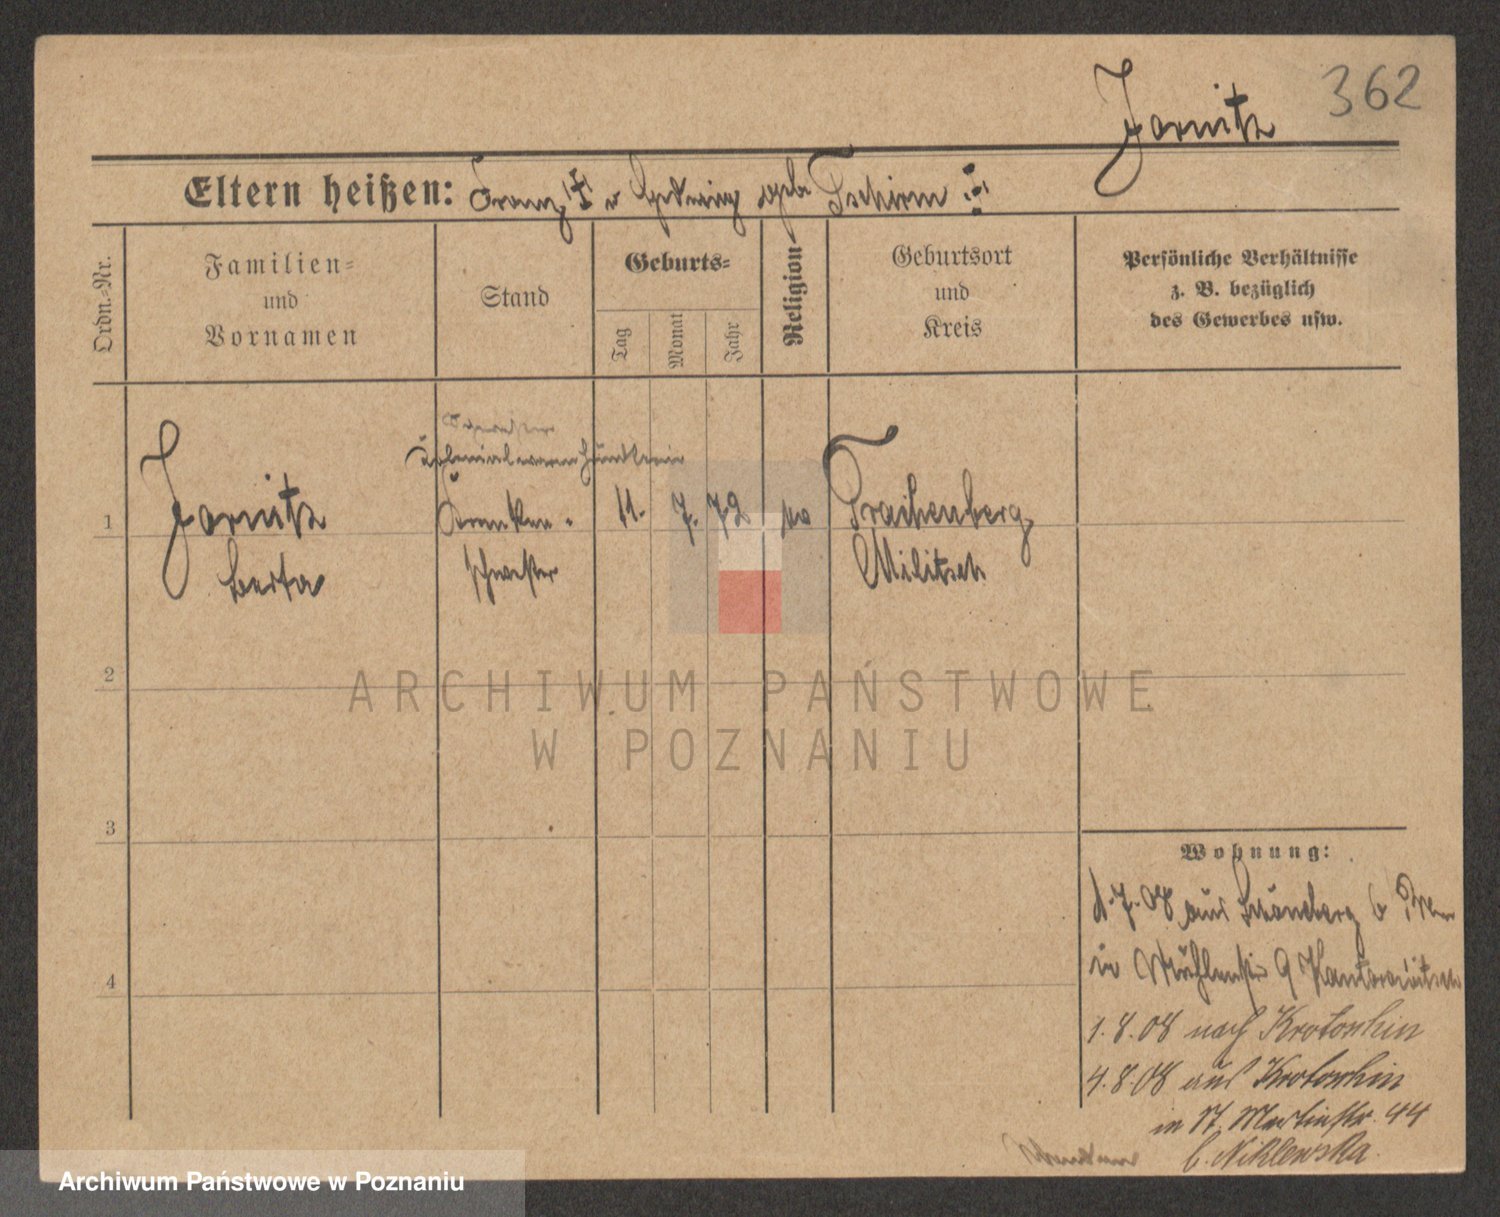 362
Jornitz
Eltern heißen: Franz u geb. Tschirn
Ordn.-Nr.
Familien-
und
Vornamen
Stand
Geburts-
Tag
Monat
Jahr
Religion
Geburtsort
und
Kreis
Persönliche Verhältnisse
z. B. bezüglich
des Gewerbes usw.
1
Jornitz
Berta
Kolonialwarenhändlerin
Kranken-
schwester
11. 7. 72
Trachenberg
Militsch
2
3
4
Wohnung:
1.7.08 aus Schöneberg b
in Mühlenstr 9 Kantorowitsch
1.8.08 nach Krotoschin
4.8.08 aus Krotoschin
in St. Martinstr. 44
b. Niklewska.
ARCHIWUM PAŃSTWOWE
W POZNANIU
Archiwum Państwowe w Poznaniu